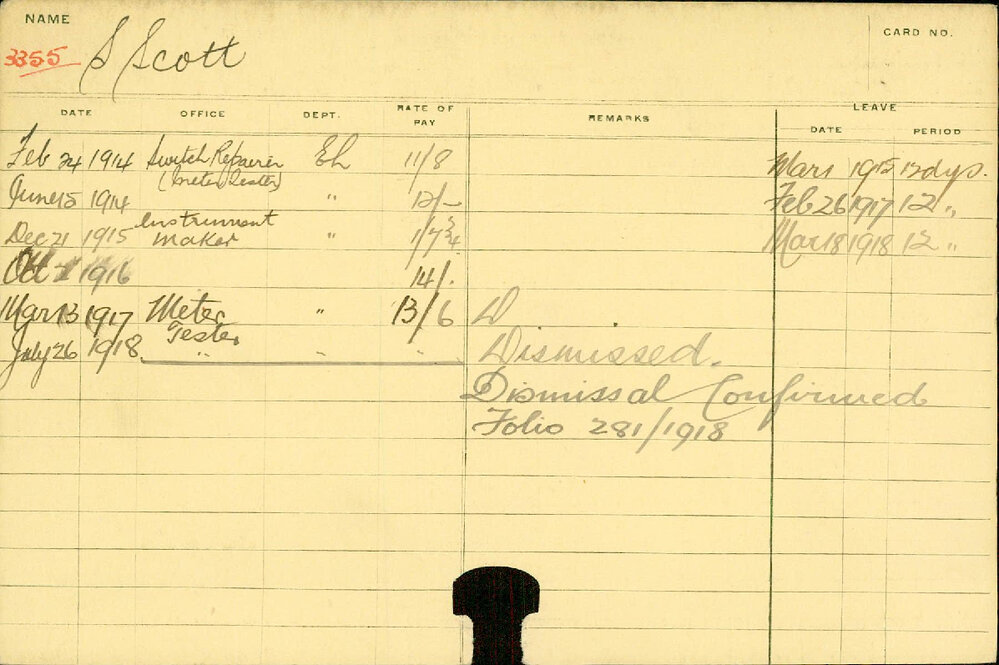 NAME
CARD NO.
3355 S Scott
DATE OFFICE DEPT. RATE OF PAY REMARKS LEAVE
DATE PERIOD
Feb 24 1914 Switch Repairer EL 11/8 Mar 1 1915 12 dys.
(Meter Tester)
June 15 1914 " 12/- Feb 26 1917 12 "
Dec 21 1915 Instrument Maker " 1/7¾ Mar 18 1918 12 "
Oct 1916 14/-
Mar 13 1917 Meter Tester " 13/6 D
July 26 1918 " " " Dismissed.
Dismissal Confirmed
Folio 281/1918